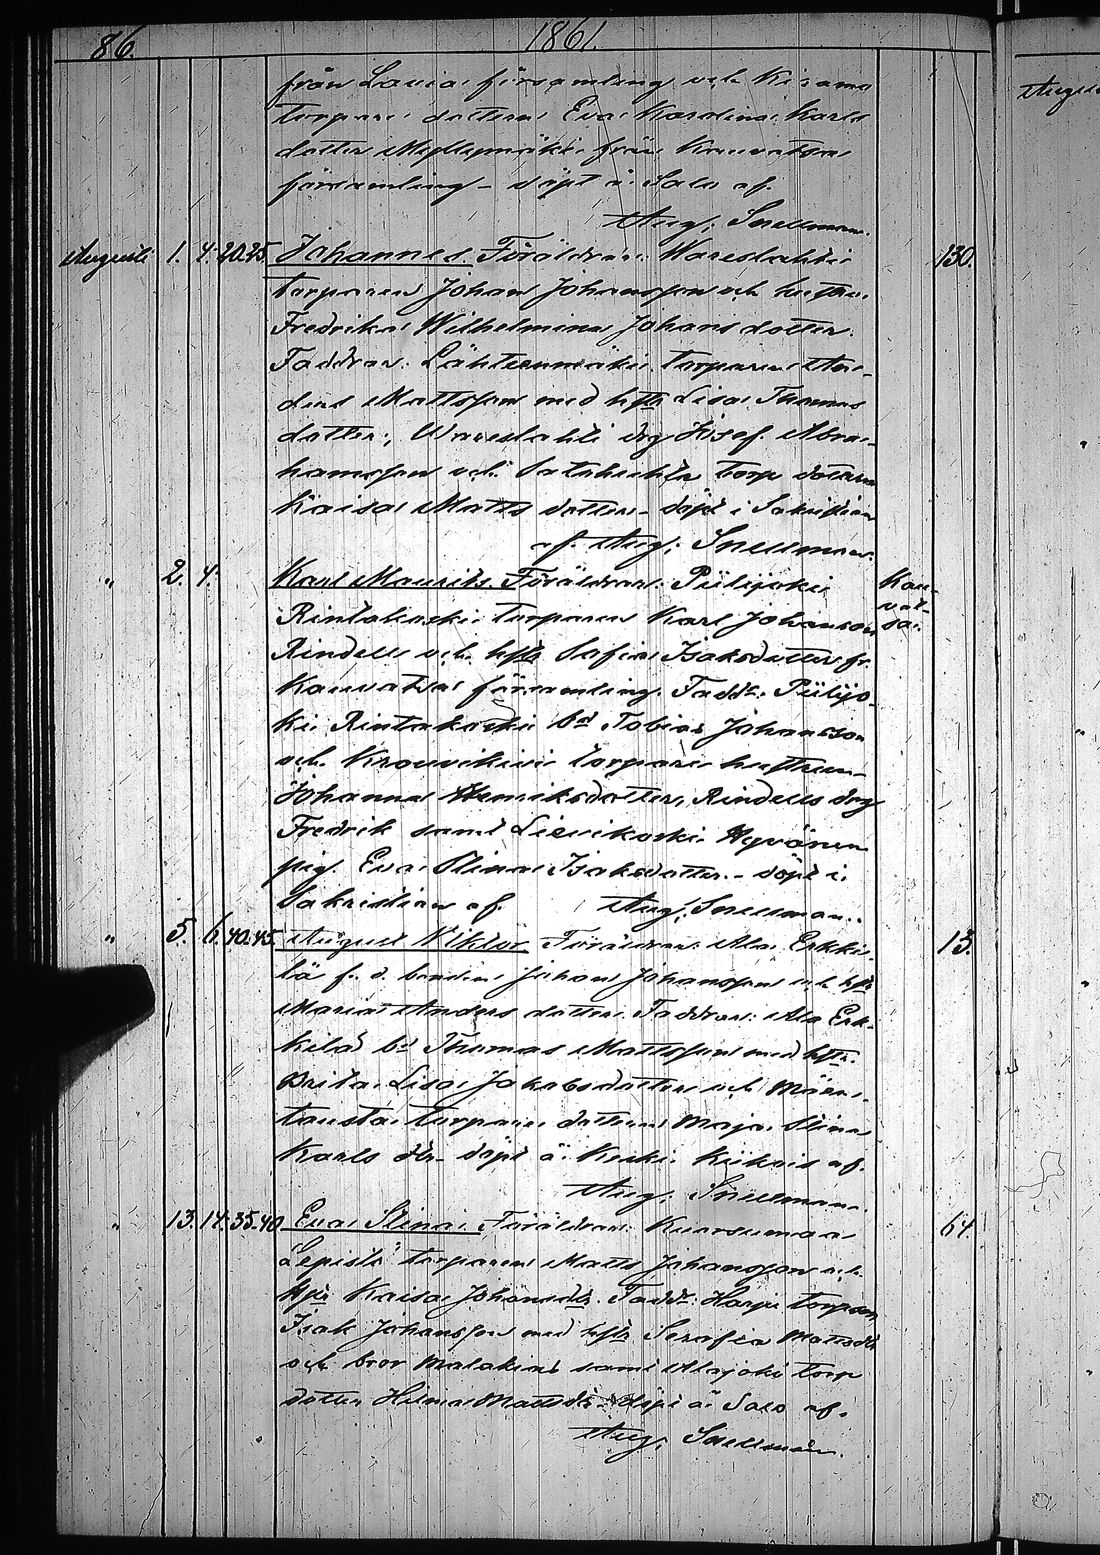 86.
1861.
från Lavia församling och Kisama
torpare dottern Eva Karolina Karls
dotter Myllymäki från Kauvatsa
församling - döpt å Salo af
Aug. Snellman.
Augusti 1. 4. 20.25. Johannes. Föräldrar: Wareslahti 130.
torparen Johan Johansson och hustru
Fredrika Wilhelmina Johans dotter.
Faddrar: Lähteenmäki torparen An-
ders Mattsson med hstr Lisa Thomas
dotter, Wareslahti drg Josef Abra-
hamsson och torp dottern
Kaisa Matts dotter - döpt i Sakristian
af Aug. Snellman.
" 2. 4. Karl Maurits. Föräldrar: Piilijoki Kau-
vat-
sa.
Rintakoski torparen Karl Johansson
Rindell och hstr Sofia Isaksdotter fr.
Kauvatsa församling. Faddr: Piilijo-
ki Rintakoski bd Tobias Johansson
och torpare hustrun
Johanna Henriksdotter, Rindells drg
Fredrik samt Lievikoski Hyvönen
pig. Eva Stina Isaksdotter - döpt i
Sakristian af Aug. Snellman.
" 5. 6. 40.45. August Viktor. Föräldrar: Ala Erkki- 13.
lä f. d. bonden Johan Johansson och hstr
Maria Anders dotter. Faddrar: Ala Erk-
kilä bd Thomas Mattsson med hstr.
Brita Lisa Jakobsdotter och
torpare dottern Maja Stina
Karls dtr - döpt å Keski Kiikois af
Aug. Snellman.
" 13. 14. 35.40. Eva Stina. Föräldrar: Kuorsumaa 64.
Lepistö torparen Matts Johansson och
hstr Kaisa Johansdtr. Faddr: Harju torparen
Isak Johansson med hstr Serafia Mattsdtr
och bror Malakias samt Alajoki torp
dotter Helena Mattsdtr - döpt å Salo af
Aug. Snellman.
Augusti